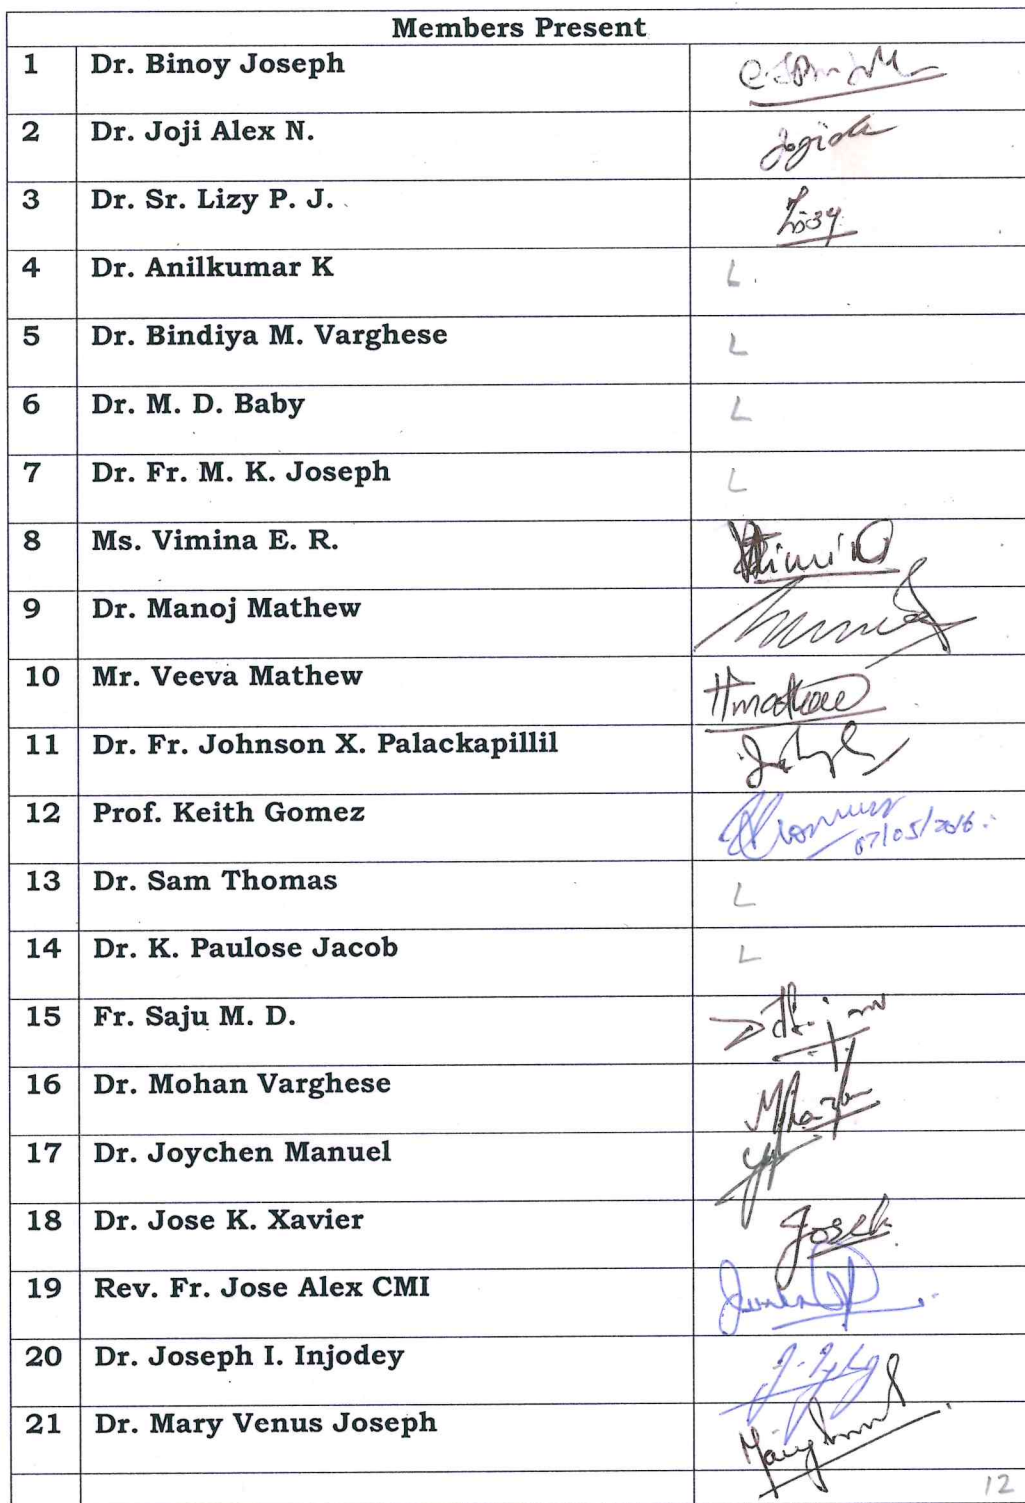 Members Present
1 Dr. Binoy Joseph
2 Dr. Joji Alex N.
3 Dr. Sr. Lizy P. J. Lizy
4 Dr. Anilkumar K L
5 Dr. Bindiya M. Varghese L
6 Dr. M. D. Baby L
7 Dr. Fr. M. K. Joseph L
8 Ms. Vimina E. R.
9 Dr. Manoj Mathew
10 Mr. Veeva Mathew
11 Dr. Fr. Johnson X. Palackapillil
12 Prof. Keith Gomez 07/05/2016.
13 Dr. Sam Thomas L
14 Dr. K. Paulose Jacob L
15 Fr. Saju M. D.
16 Dr. Mohan Varghese
17 Dr. Joychen Manuel
18 Dr. Jose K. Xavier
19 Rev. Fr. Jose Alex CMI
20 Dr. Joseph I. Injodey
21 Dr. Mary Venus Joseph
12